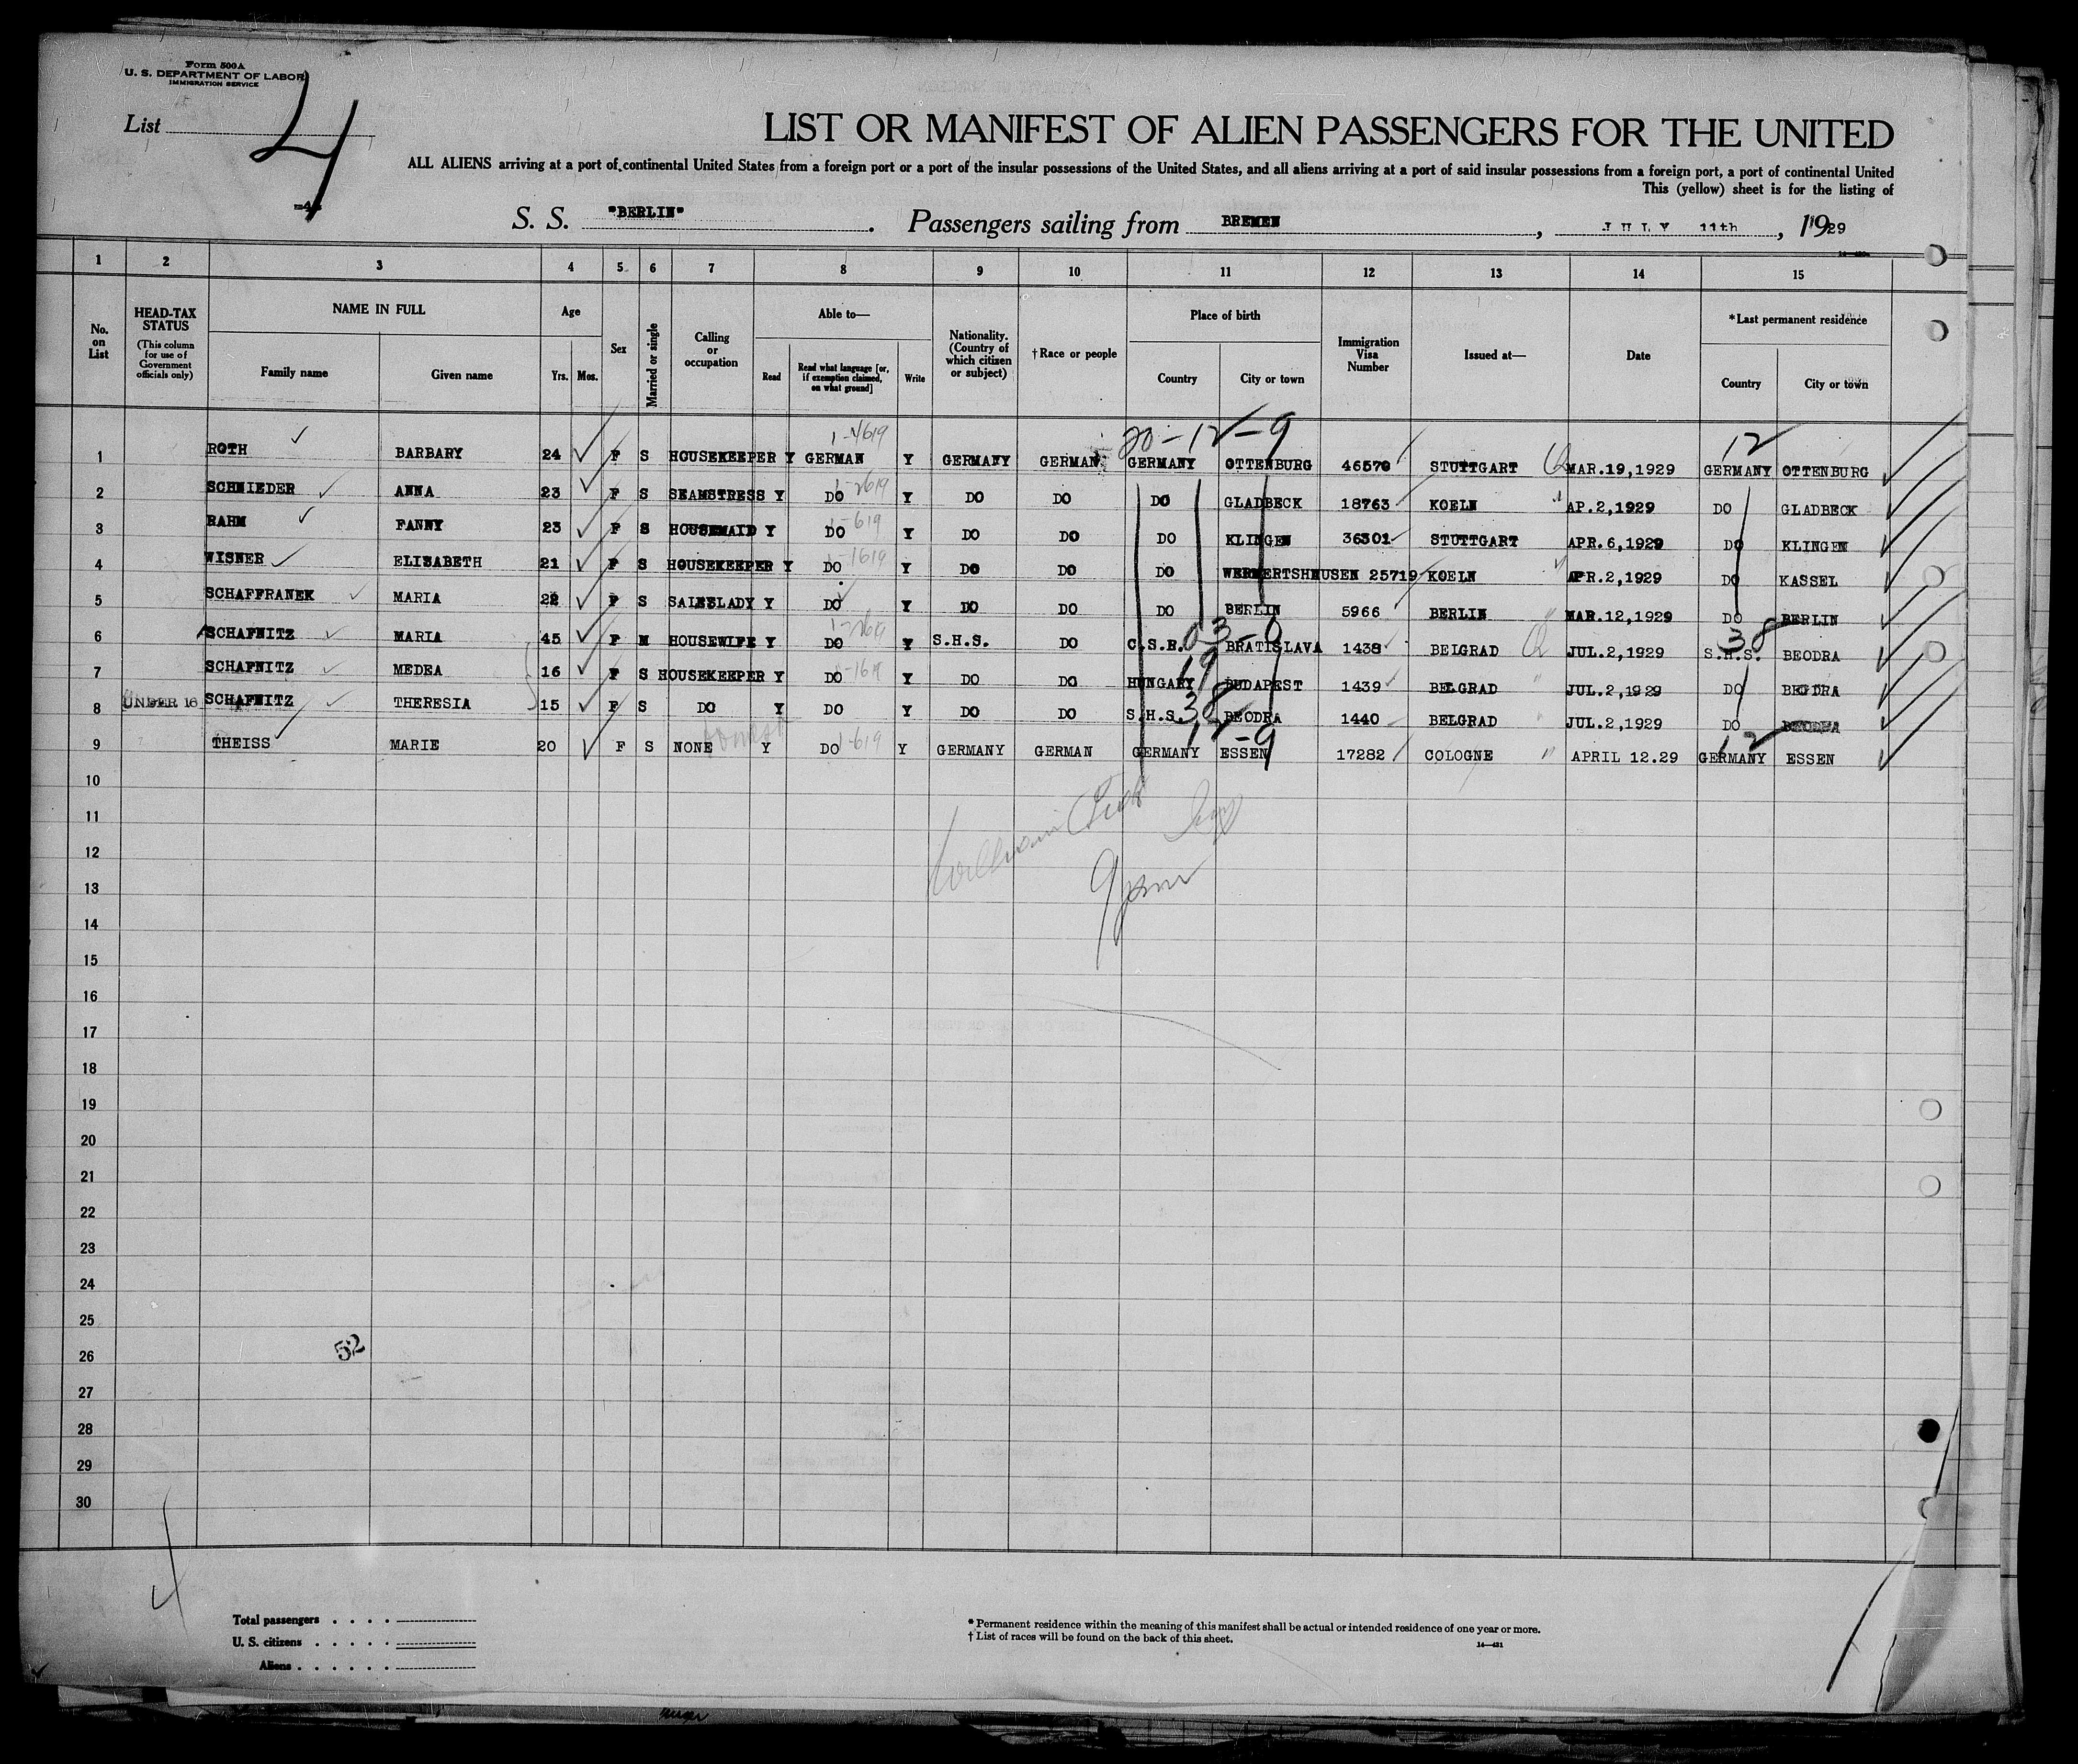 Form 500A
U. S. DEPARTMENT OF LABOR
IMMIGRATION SERVICE
List 4
LIST OR MANIFEST OF ALIEN PASSENGERS FOR THE UNITED
ALL ALIENS arriving at a port of continental United States from a foreign port or a port of the insular possessions of the United States, and all aliens arriving at a port of said insular possessions from a foreign port, a port of continental United
This (yellow) sheet is for the listing of
S. S. "BERLIN". Passengers sailing from BREMEN, JULY 11th, 1929
1 2 3 4 5 6 7 8 9 10 11 12 13 14 15
No. on List
HEAD-TAX STATUS (This column for use of Government officials only)
NAME IN FULL Family name Given name
Age Yrs. Mos.
Sex
Married or single
Calling or occupation
Able to— Read Read what language [or, if exemption claimed, on what ground] Write
Nationality. (Country of which citizen or subject)
†Race or people
Place of birth Country City or town
Immigration Visa Number
Issued at—
Date
*Last permanent residence Country City or town
20-12-9 12
1-4619
1 ROTH BARBARY 24 F S HOUSEKEEPER Y GERMAN Y GERMANY GERMAN GERMANY OTTENBURG 46570 STUTTGART MAR.19,1929 GERMANY OTTENBURG
1-2619
2 SCHNIEDER ANNA 23 F S SEAMSTRESS Y DO Y DO DO DO GLADBECK 18763 KOELN AP.2,1929 DO GLADBECK
1-619
3 RAHM FANNY 23 F S HOUSEMAID Y DO Y DO DO DO KLINGEN 36301 STUTTGART APR.6,1929 DO KLINGEN
1-1619
4 WISNER ELISABETH 21 F S HOUSEKEEPER Y DO Y DO DO DO WERMERTSHAUSEN 25719 KOELN APR.2,1929 DO KASSEL
5 SCHAFFRANEK MARIA 22 F S SALESLADY Y DO Y DO DO DO BERLIN 5966 BERLIN MAR.12,1929 DO BERLIN
1-2619 03-0 38
6 SCHAFNITZ MARIA 45 F M HOUSEWIFE Y DO Y S.H.S. DO C.S.R. BRATISLAVA 1438 BELGRAD JUL.2,1929 S.H.S. BEODRA
1-1619 19
7 SCHAFNITZ MEDEA 16 F S HOUSEKEEPER Y DO Y DO DO HUNGARY BUDAPEST 1439 BELGRAD JUL.2,1929 DO BEODRA
38
8 UNDER 16 SCHAFNITZ THERESIA 15 F S DO Y DO Y DO DO S.H.S. BEODRA 1440 BELGRAD JUL.2,1929 DO BEODRA
1-619 12-9 12
9 THEISS MARIE 20 F S NONE Y DO Y GERMANY GERMAN GERMANY ESSEN 17282 COLOGNE APRIL 12.29 GERMANY ESSEN
10
11
12
13
14
15
16
17
18
19
20
21
22
23
24
25
52
26
27
28
29
30
Total passengers . . . .
U. S. citizens . . . . .
Aliens . . . . . .
* Permanent residence within the meaning of this manifest shall be actual or intended residence of one year or more.
† List of races will be found on the back of this sheet.
14—421